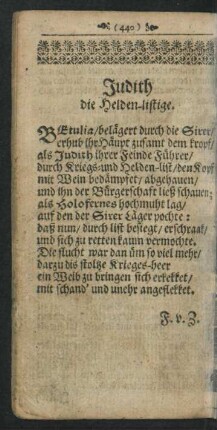 (440)
Judith
die Helden-listige.
BEtulia/belägert durch die Sirer/
erhub ihr Häupt zusamt dem kropf/
als Judith ihrer Feinde Führer/
durch Kriegs-und Helden-list/den Kopf
mit Wein bedämpfet/abgehauen/
und ihn der Bürgerschaft ließ schauen:
als Holofernes hochmuht lag/
auf den der Sirer Läger pochte:
daß nun/durch list besiegt/erschrak/
und sich zu retten kaum vermochte.
Die flucht war dan üm so viel mehr/
darzu dis stoltze Krieges-heer
ein Weib zu bringen sich erkekket/
mit schand' und unehr angeflekket.
F. v. Z.